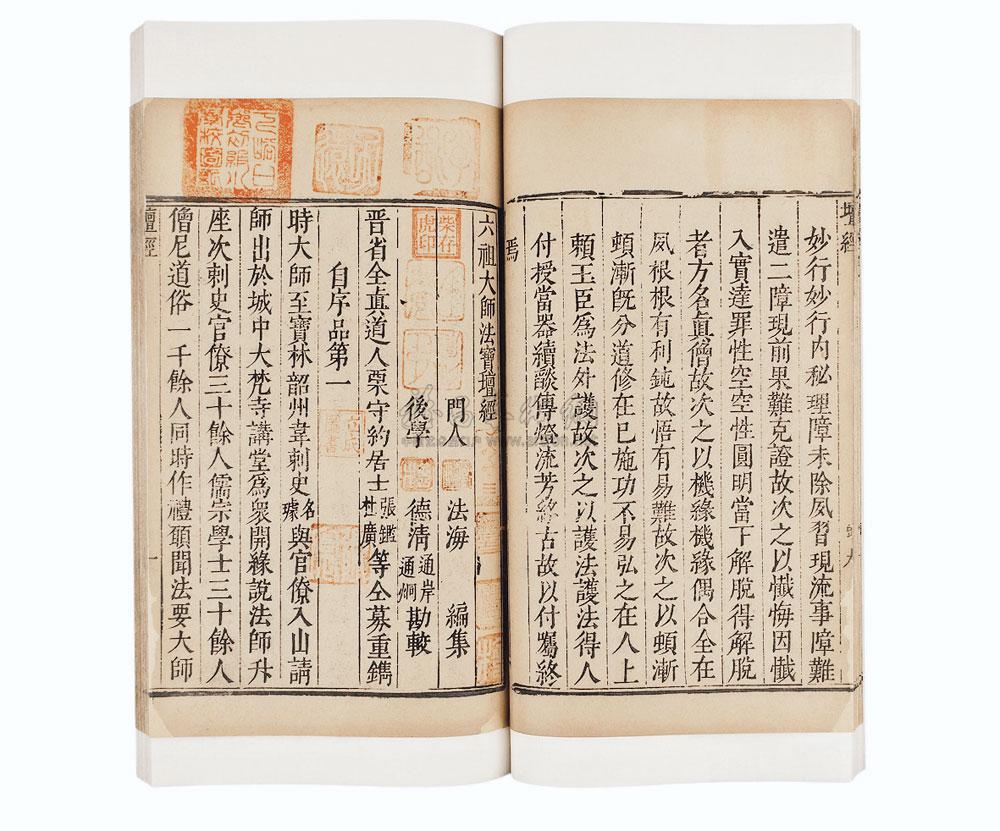 妙行妙行內秘理障未除夙習現流事障難
遣二障現前果難克證故次之以懺悔因懺
入實達罪性空空性圓明當下解脫得解脫
者方名眞僧故次之以機緣機緣偶合全在
夙根根有利鈍故悟有易難故次之以頓漸
頓漸旣分道修在已施功不易弘之在人上
賴王臣爲法外護故次之以護法護法得人
付授當器續談傳燈流芳終古故以付囑終
焉
壇經
六祖大師法寶壇經
柴存
虎印
門人 法海 編集
後學 德清 通岸 通炯 勘較
晉省全眞道人栗守約居士張鑑杜廣等仝募重鐫
自序品第一
時大師至寶林韶州韋刺史名璩與官僚入山請
師出於城中大梵寺講堂爲衆開緣說法師升
座次刺史官僚三十餘人儒宗學士三十餘人
僧尼道俗一千餘人同時作禮願聞法要大師
壇經
一